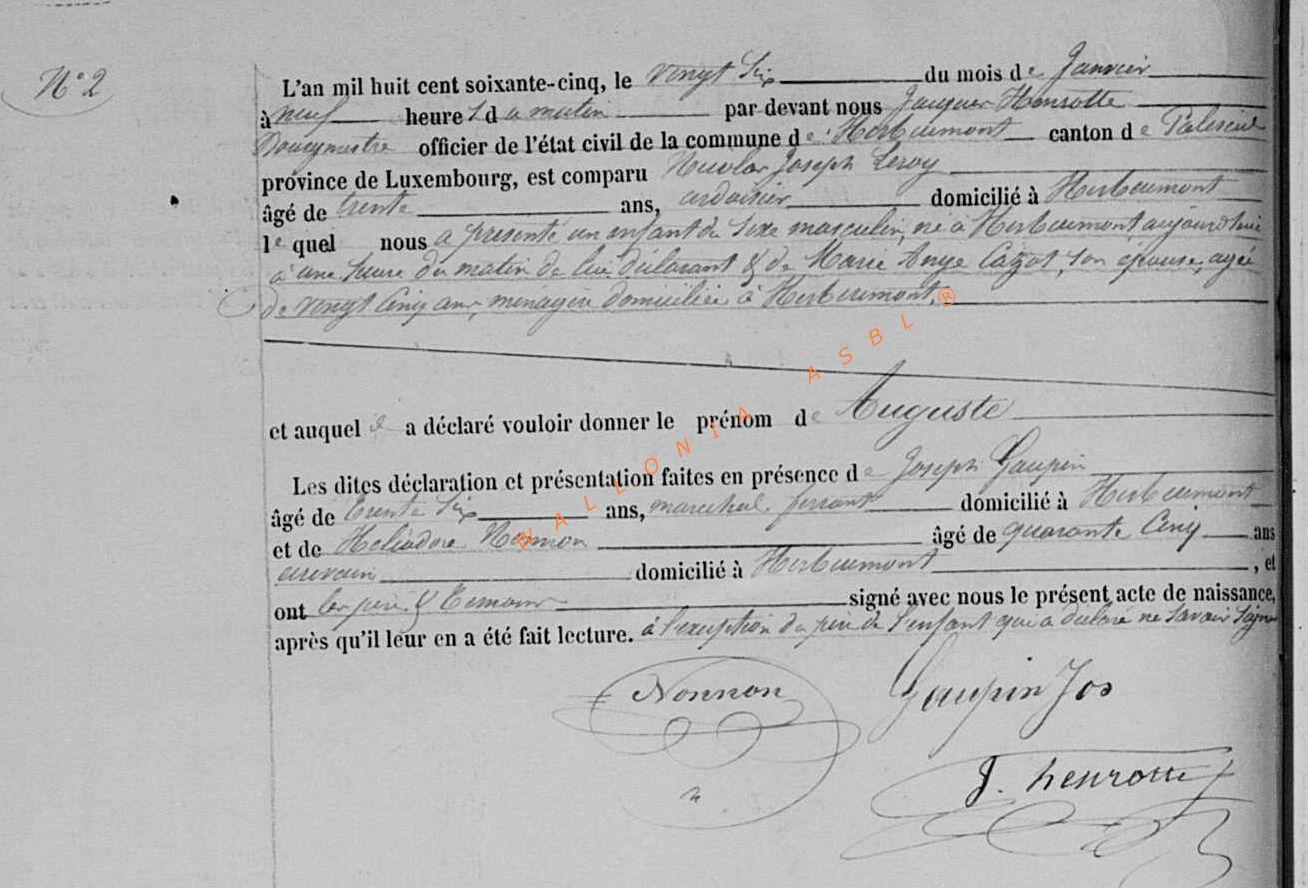 N° 2
L'an mil huit cent soixante-cinq, le vingt Six du mois de Janvier
à neuf heures du matin par devant nous Jacques Henrotte
Bourgmestre officier de l'état civil de la commune de Herbeumont canton de Paliseul
province de Luxembourg, est comparu Nicolas Joseph Leroy
âgé de trente ans, ardoisier domicilié à Herbeumont
lequel nous a présenté un enfant du sexe masculin, né à Herbeumont, aujourd'hui
à une heure du matin de lui déclarant & de Marie Ange Cazot, son épouse, agée
de vingt Cinq ans, ménagère domiciliée à Herbeumont,
et auquel il a déclaré vouloir donner le prénom de Auguste
Les dites déclaration et présentation faites en présence de Joseph Gaupin
âgé de trente Six ans, marechal ferrant domicilié à Herbeumont
et de Héliodore Nonnon âgé de quarante Cinq ans
domicilié à Herbeumont, et
ont les père & temoins signé avec nous le présent acte de naissance,
après qu'il leur en a été fait lecture. à l'exception du père de l'enfant qui a déclaré ne savoir signer
Nonnon Gaupin Jos
J. henrotte
WALLONIA ASBL ®